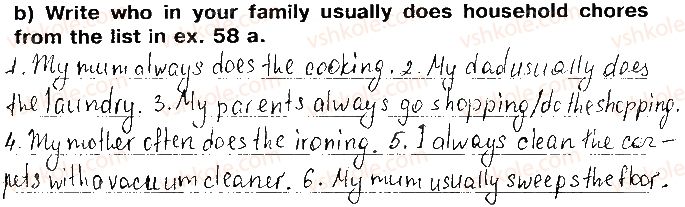 b) Write who in your family usually does household chores
from the list in ex. 58 a.
1. My mum always does the cooking. 2. My dad usually does
the laundry. 3. My parents always go shopping/do the shopping.
4. My mother often does the ironing. 5. I always clean the car-
pets with a vacuum cleaner. 6. My mum usually sweeps the floor.